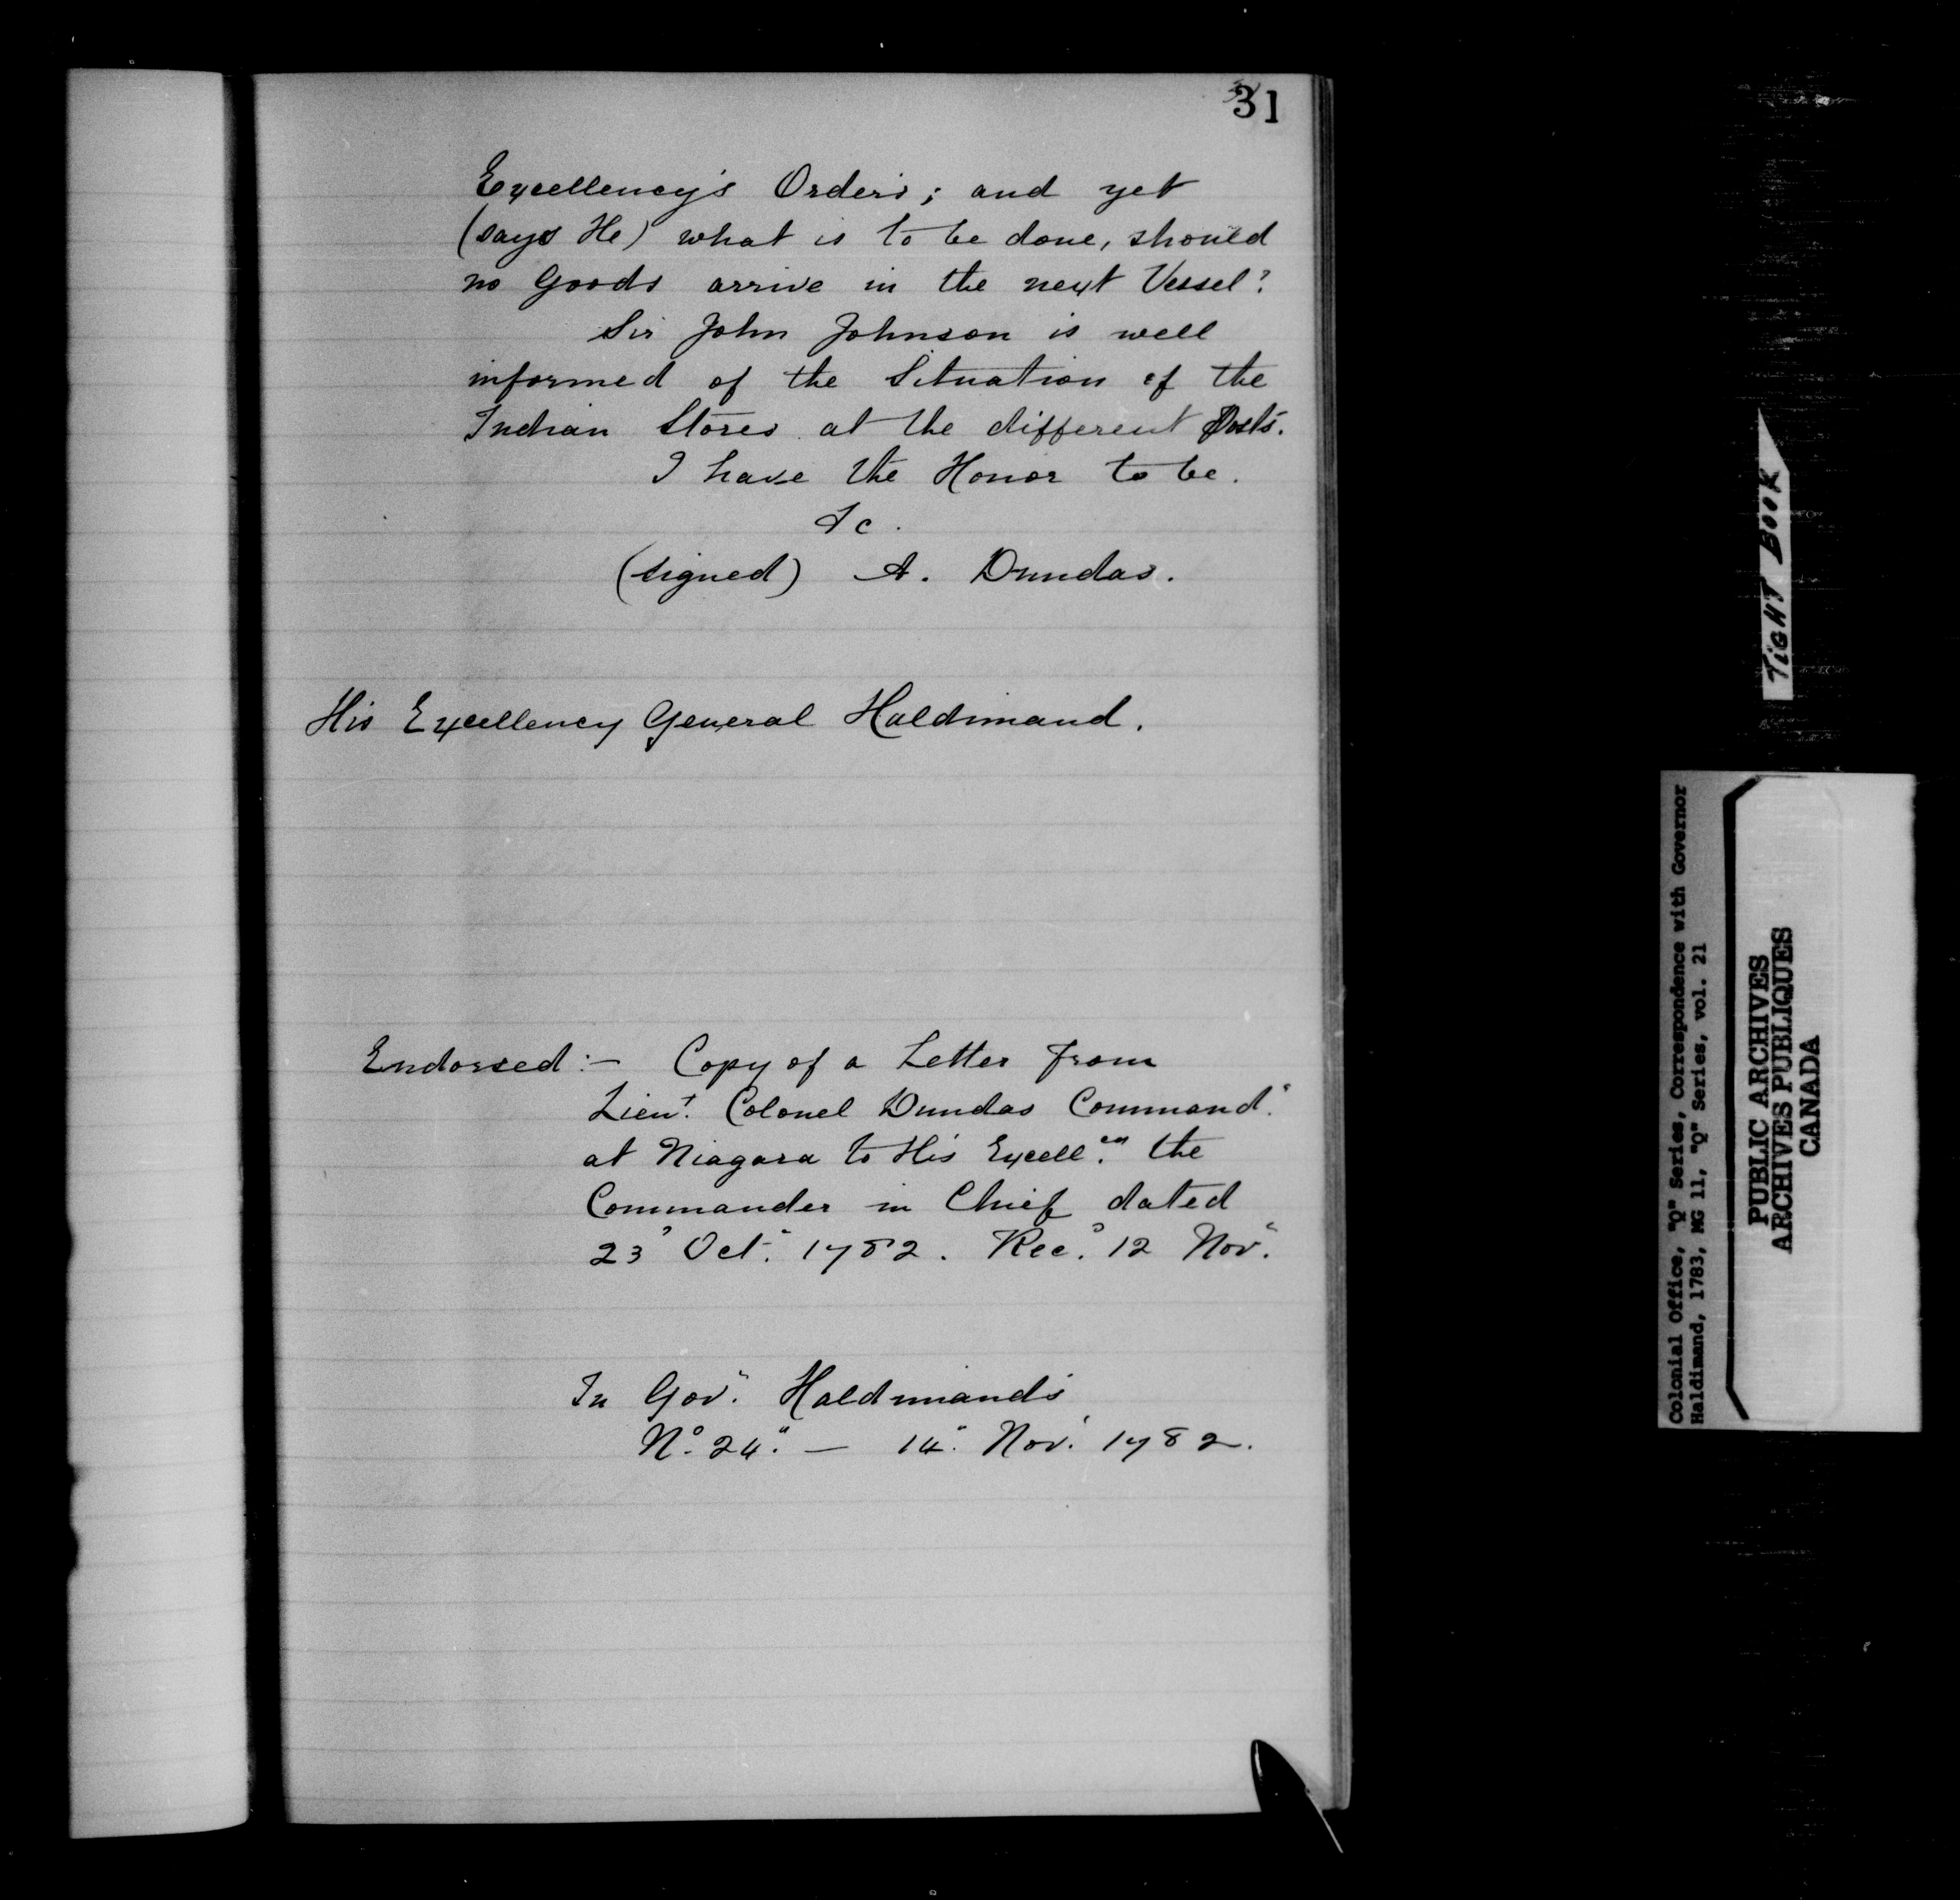 31
Excellency's Orders; and yet
(says He) what is to be done, should
no Goods arrive in the next Vessel?
Sir John Johnson is well
informed of the Situation of the
Indian Stores at the different Posts.
I have the Honor to be.
&c.
(signed) A. Dundas.
His Excellency General Haldimand.
Endorsed:- Copy of a Letter from
Lieu.t Colonel Dundas Command.g
at Niagara to His Excell.cy the
Commander in Chief dated
23d Oct.r 1782. Rec.d 12 Nov.r
In Gov.r Haldimand's
No. 24. — 14. Nov.r 1782.
TIGHT BOOK
Colonial Office, "Q" Series, Correspondence with Governor
Haldimand, 1783, MG 11, "Q" Series, vol. 21
PUBLIC ARCHIVES
ARCHIVES PUBLIQUES
CANADA